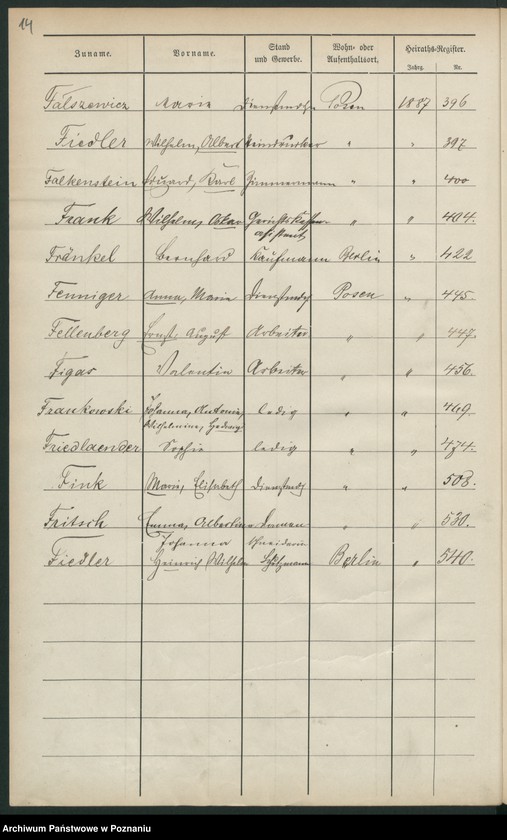 14
Zuname. Vorname. Stand und Gewerbe. Wohn- oder Aufenthaltsort. Heiraths-Register.
Jahrg. Nr.
Falszewicz Marie Dienstmdch Posen 1887 396
Fiedler Wilhelm, Albert Steindrucker " " 397
Falkenstein Eduard, Karl Zimmermann " " 400
Frank Wilhelm, Oskar Gerichts Kassen " " 404.
assistent
Fränkel Bernhard Kaufmann Berlin " 422
Fenniger Anna, Marie Dienstmdch Posen " 445.
Fellenberg Ernst August Arbeiter " " 447.
Figas Valentin Arbeiter " " 456.
Frankowski Johanna, Antonie, ledig " " 469.
Wilhelmine, Hedwig
Friedlaender Sophie ledig " " 474.
Fink Marie, Elisabeth Dienstmdch " " 508.
Fritsch Emma, Albertine Damen " " 530.
Johanna schneiderin
Fiedler Heinrich Wilhelm Schutzmann Berlin " 540.
Archiwum Państwowe w Poznaniu